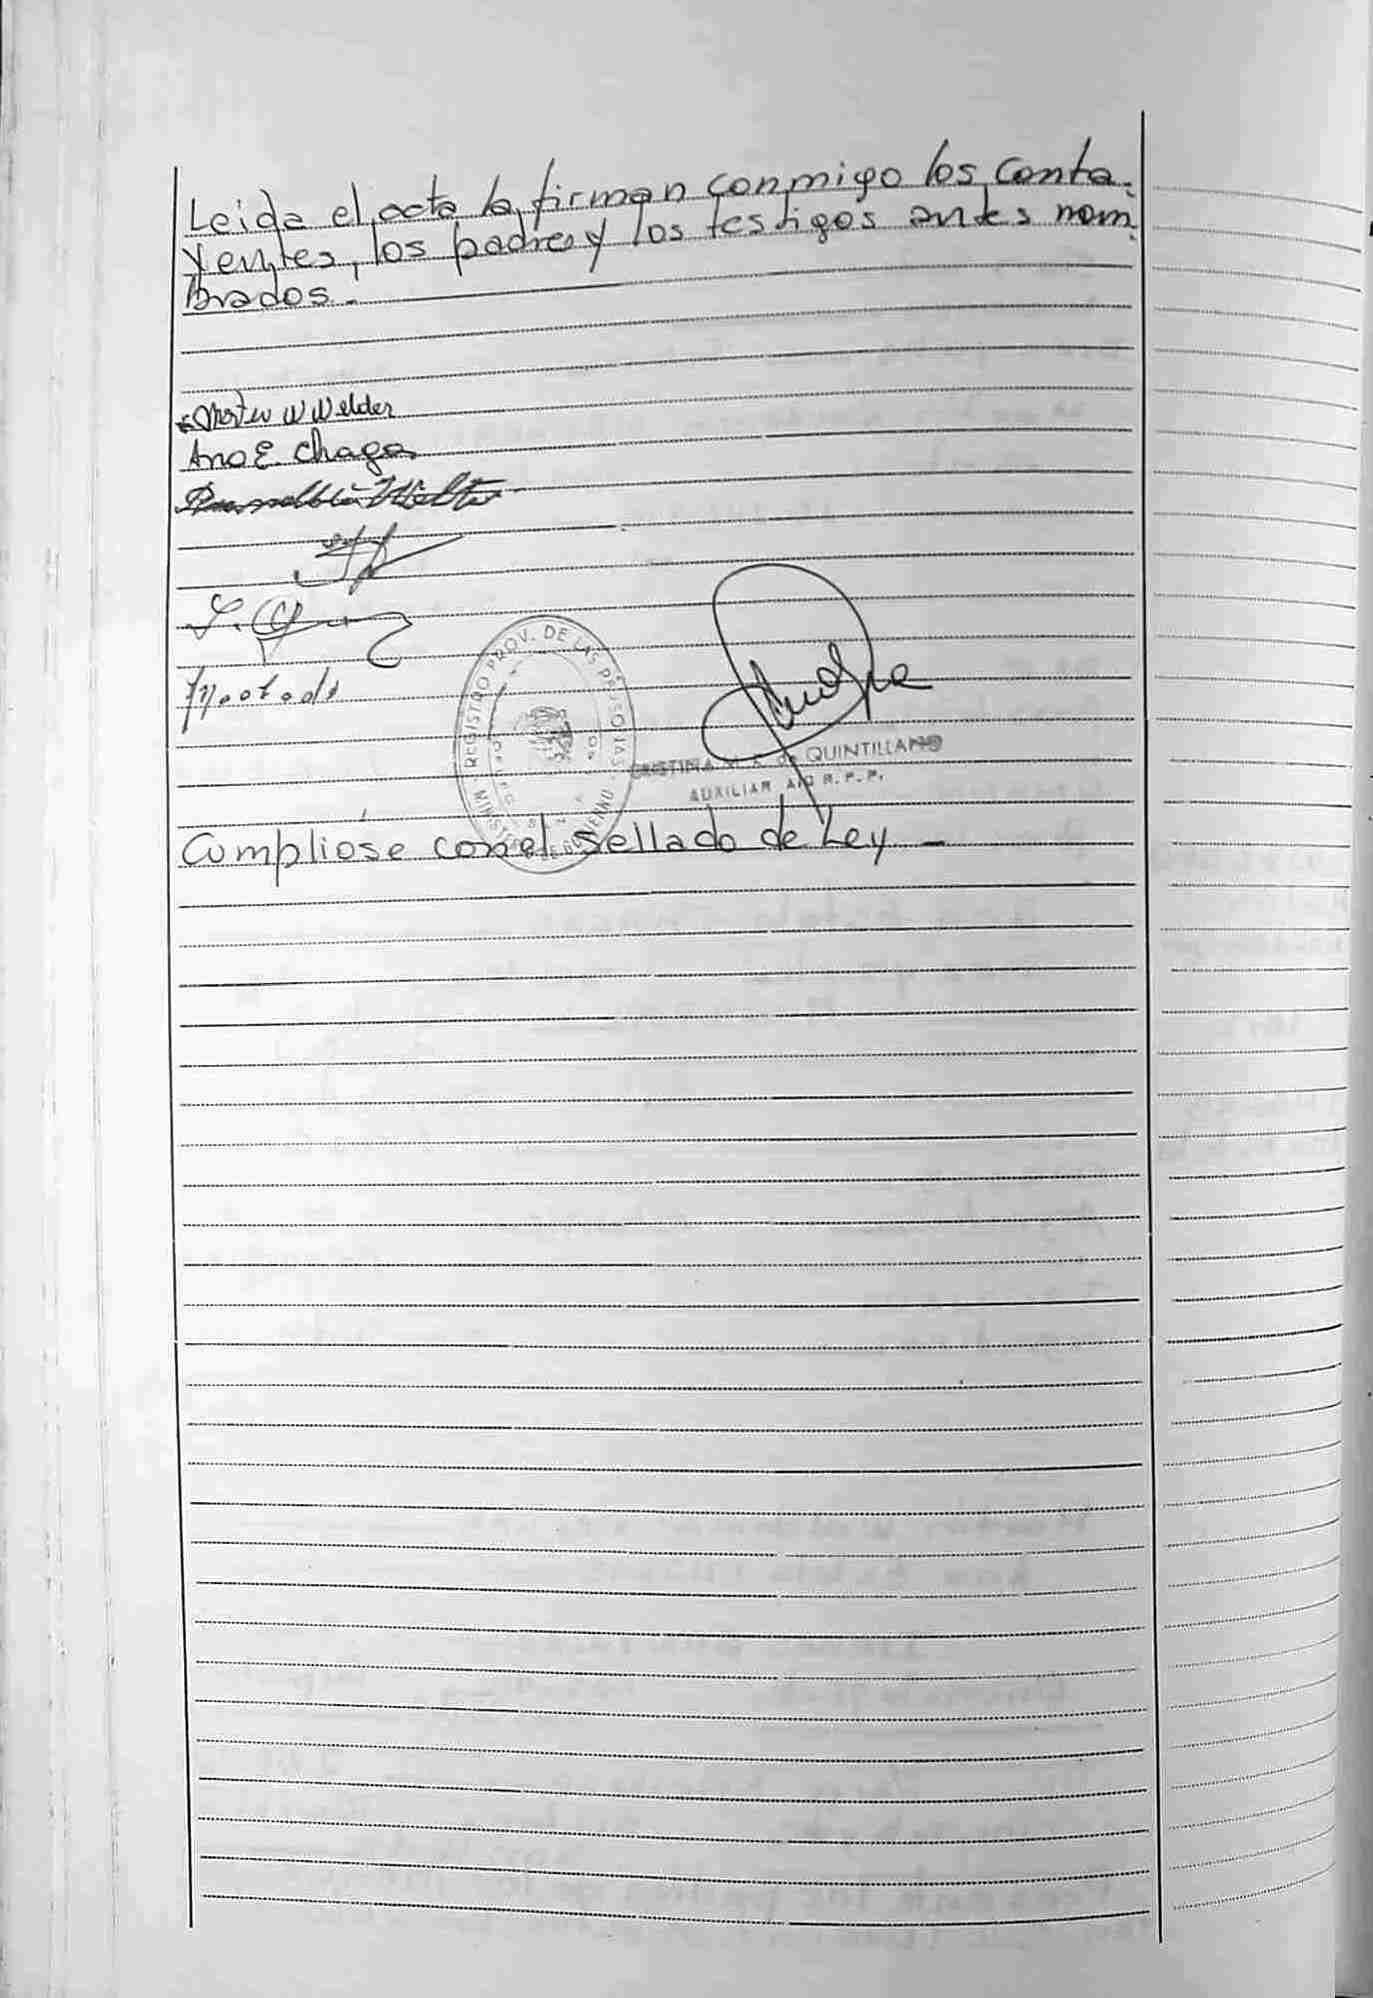 Leida el acta la firman conmigo los contra-
yentes, los padres y los testigos antes nom-
brados.-
W Welder
Ana E. Chaga
REGISTRO PROV. DE LAS PERSONAS
MINISTERIO GOBIERNO
CRISTINA M. de QUINTILLANO
AUXILIAR A/C R. P. P.
Cumplióse con el sellado de Ley -